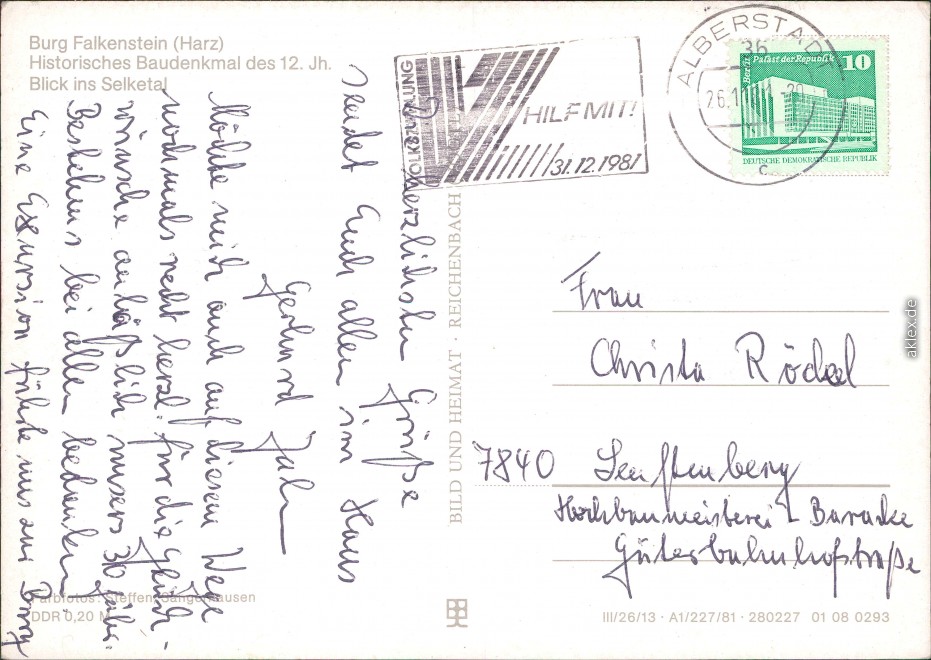 Burg Falkenstein (Harz)
Historisches Baudenkmal des 12. Jh.
Blick ins Selketal
Eine Exkursion führte uns zur Burg
Bestehens bei allen bedanken
wünsche anläßlich unsers 30 jähr.
nochmals recht herzl. für die Glück-
Möchte mich auch auf diesem Wege
Gerhard
sendet Euch allen im Haus
Herzlichste Grüße
Farbfotos: Steffen, Sangerhausen
DDR 0,20 M
BILD UND HEIMAT · REICHENBACH
VOLKSZÄHLUNG
HILF MIT!
31.12.1981
ALBERSTAD
36
26.1
c
Berlin Palast der Republik 10
DEUTSCHE DEMOKRATISCHE REPUBLIK
Frau
Christa Rödel
7840 Senftenberg
Hochbaumeisterei - Baracke
Güterbahnhofstraße
III/26/13 · A1/227/81 · 280227 01 08 0293
aklex.de